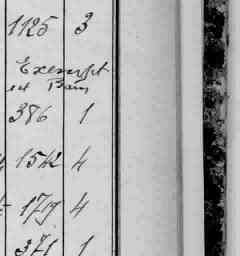 1125 3
Exempt
386 1
1542 4
1719 4
371 1